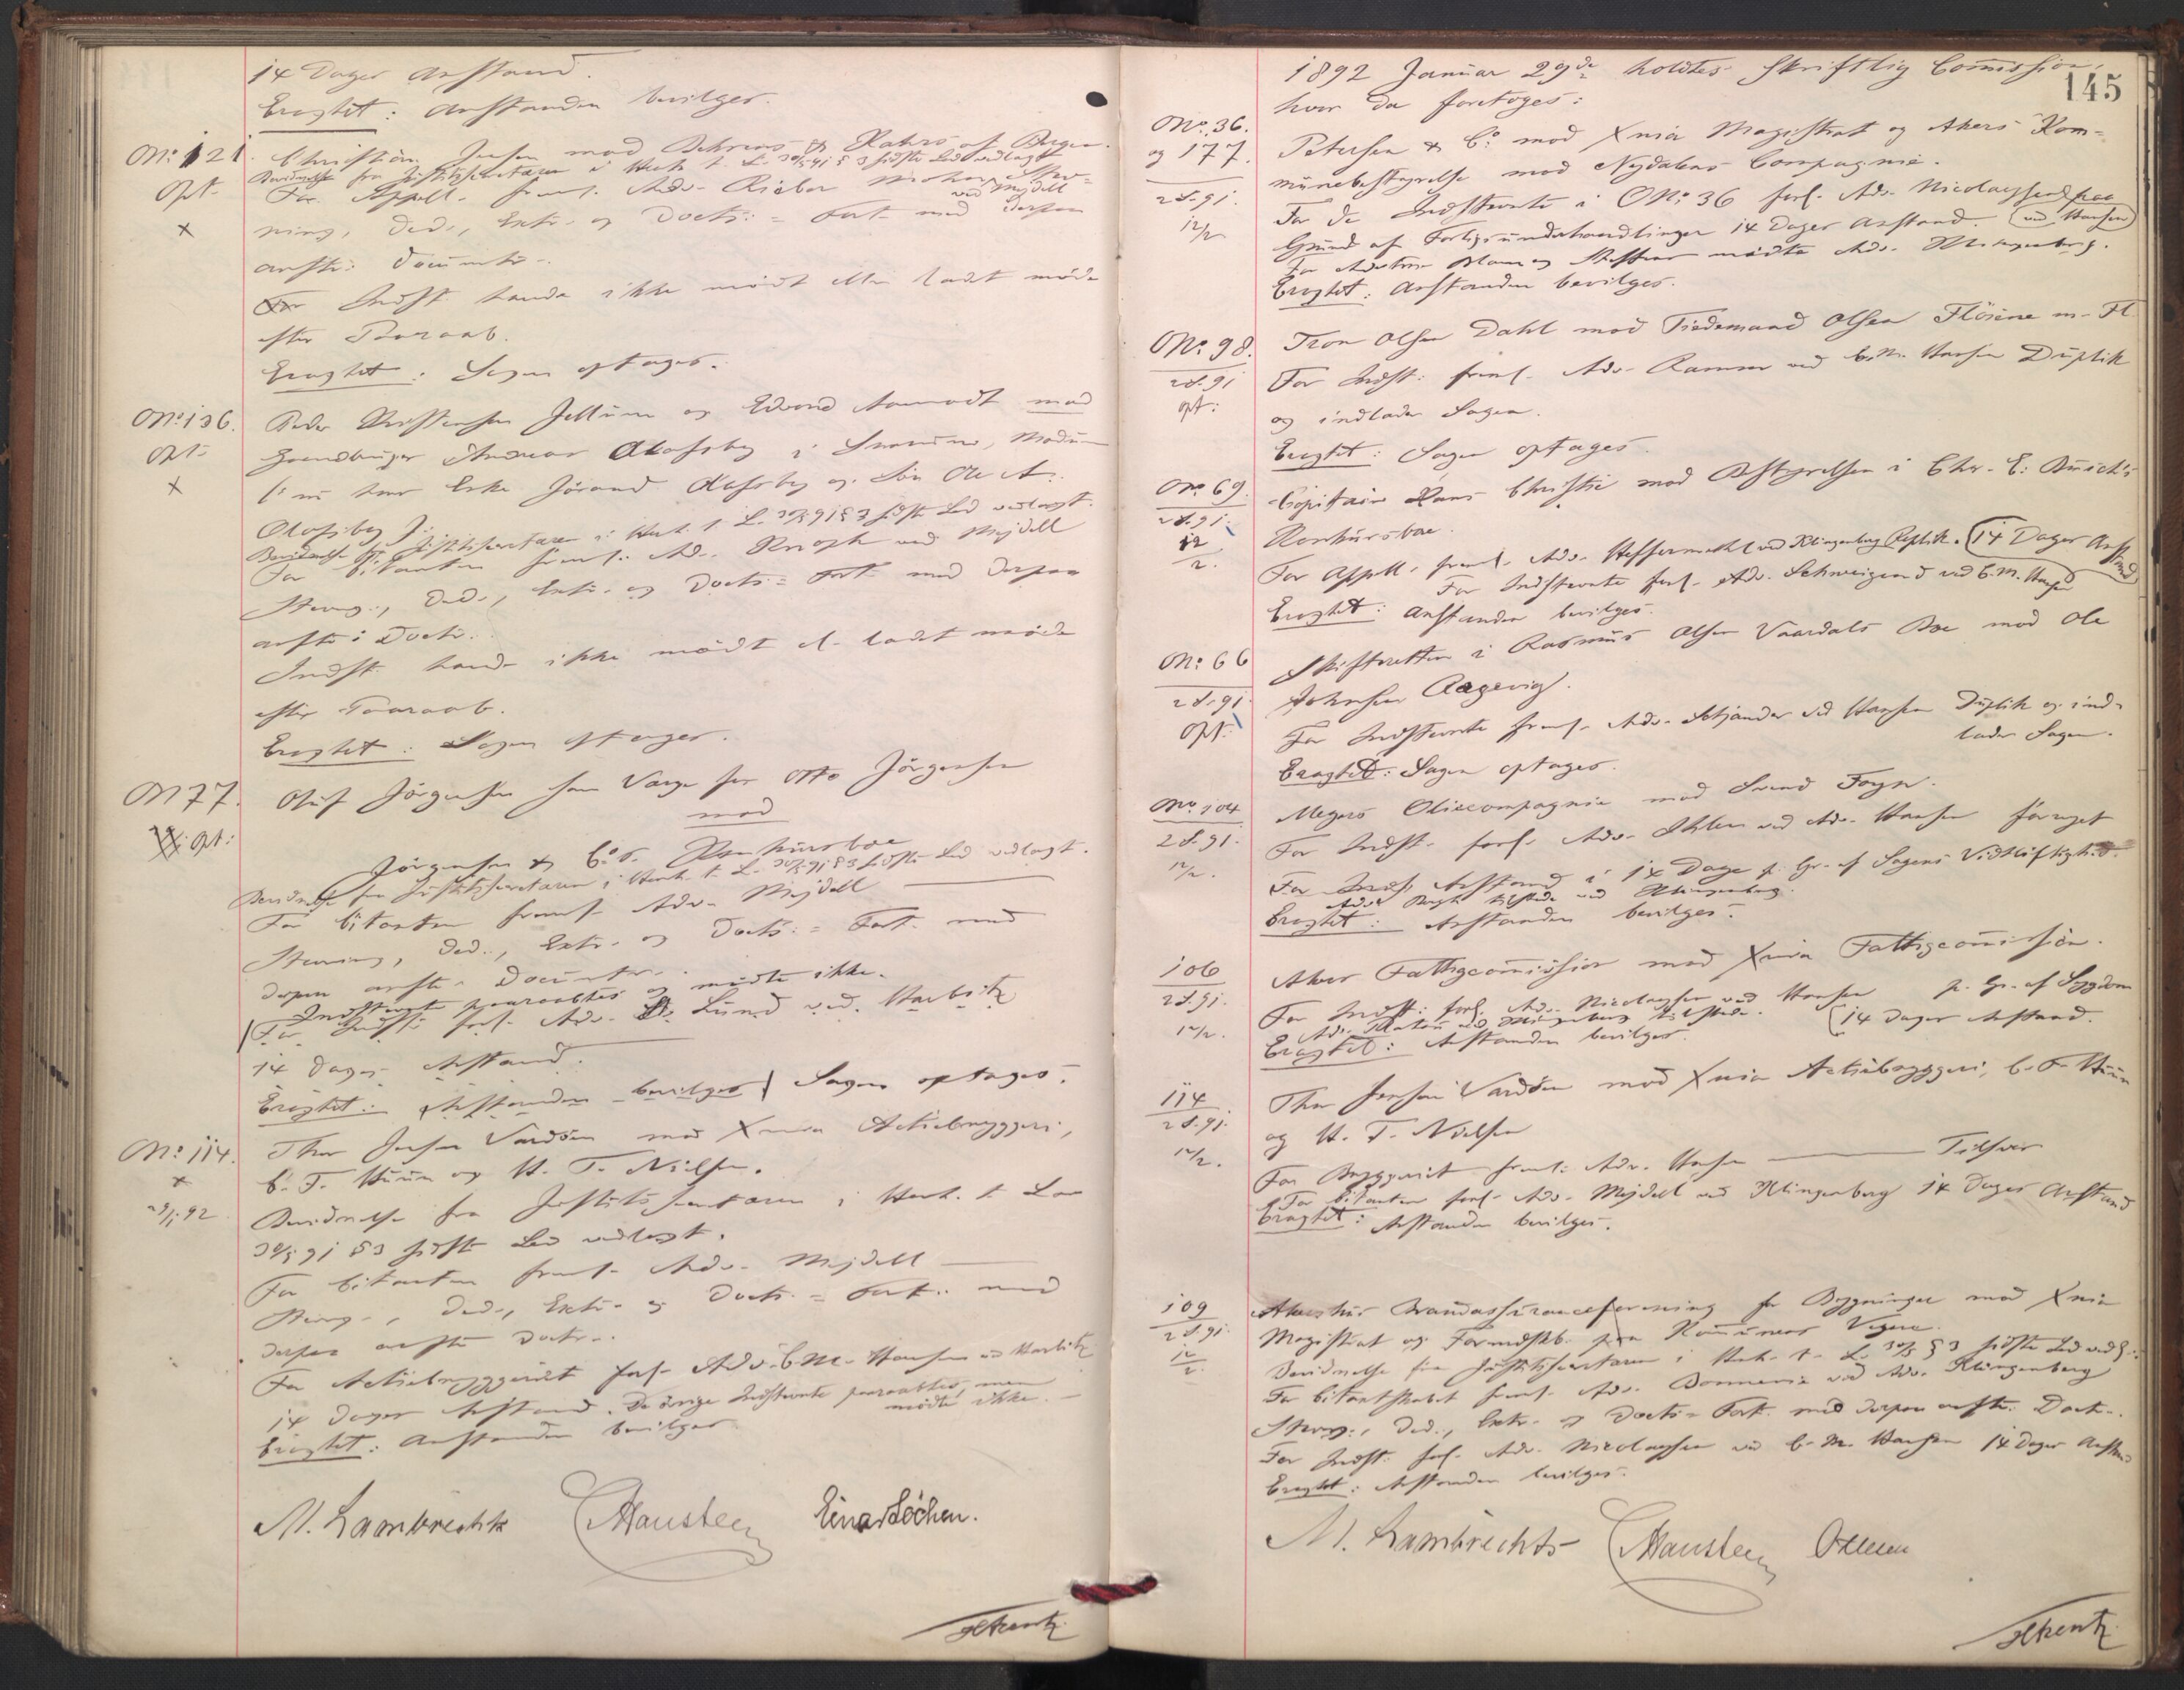 14 Dages Anstand.
Eragtet: Anstanden bevilges.
No. 121. Christian Jensen mod Behrens & Rahrs af Bergen.
Bevidnelse fra Justitssecretæren i Henh. t. L. 30/5 91 § 3 sidste Led vedlagt
Opt. For Appell. freml. Adv. Rieber ved Mejdell Stev-
x ning, Ded., Extr. og Docts: Fort. med derpaa
anft: Documenter.
For Indst. havde ikke mødt eller ladet møde
efter Paaraab.
Eragtet: Sagen optages.
No. 136. Peder Jellum og Edvard Aamodt mod
opt. Gaardbruger Andreas Olafsby i Snarum, Modum
x
Olafsby)
Bevidnelse fra Justitssecretæren i Henh. t. L. 30/5 91 § 3 sidste Led vedlagt.
For Citanten freml. Adv. ved Mejdell
Stevng., Ded., Extr. og Docts: Fort. med derpaa
anfte: Docts.
Indst. havde ikke mødt el. ladet møde
efter Paaraab.
Eragtet: Sagen optages.
No 77. Oluf Jörgensen som Værge for Otto Jörgensen
mod
opt: Jörgensen & Co.s Konkursboe
Bevidnelse fra Justitssecretæren i Henh. t. L. 30/5 91 § 3 sidste Led vedlagt.
For Citanten freml. Adv. Mejdell
Stevning, Ded., Extr. og Docts: Fort. med
derpaa anfte. Documenter.
Indstevnte paaraabtes og mødte ikke.
For Indst: forl. Adv. Lund ved Harbitz
14 Dages Anstand.
Eragtet: Anstanden bevilges Sagen optages.
No. 114. Thor Jensen Vardöen mod Xnia Actiebryggeri,
x C. F. Huun og H. T. Nielsen.
29/1 92 Bevidnelse fra Justitssecretæren i Henh. t. Lov
30/5 91 § 3 sidste Led vedlagt.
For Citanten freml. Adv. Mejdell
Stevng., Ded., Extr. og Docts. Fort. med
derpaa anfte Docts.
For Actiebryggeriet forl. Adv. C. M. Hansen ved Harbitz
14 Dages Anstand. De övrige Indstevnte paaraabtes, men
mødte ikke.
Eragtet: Anstanden bevilges
M. Lambrechts CHansteen Einar Löchen.
145
1892 Januar 29de holdtes Skriftlig Commission,
hvor da foretoges:
No. 36. Petersen & Co. mod Xnia Magistrat og Akers Kom-
og 177. munebestyrelse mod Nydalens Compagnie.
2 S. 91. For de Indstevnte i No. 36 forl. Adv. Nicolaysen paa
12/2 Grund af Forligsunderhandlinger 14 Dages Anstand. (ved Hansen)
mødte Adv. Klingenberg.
Eragtet: Anstanden bevilges.
No. 98. Tron Olsen Dahl mod Tiedemand Olsen Flörene m. Fl.
2 S. 91 For Indst: freml. Adv. Ramm ved C. M. Hansen Duplik
opt: og indlader Sagen.
Eragtet: Sagen optages.
No. 69. Capitain Hans Christie mod Bestyrelsen i Chr. E. Busch's
2 S. 91. Konkursboe.
12/2. For Appell. freml. Adv. Heffermehl ved Klingenberg Replik. (14 Dages Anstand)
For Indstevnte forl. Adv. Schweigaard ved C. M. Hansen
Eragtet: Anstanden bevilges.
No. 66 Skifteretten i Rasmus Olsen Vaardals Boe mod Ole
2 S. 91. Johnsen Aagevig.
opt. For Indstevnte freml. Adv. Schjander ved Hansen Duplik og ind-
lader Sagen.
Eragtet: Sagen optages.
No. 104 Meyers Oliecompagnie mod Svend Foyn.
2 S. 91. For Indst. forl. Adv. Ihlen ved Adv. Hansen forøget
12/2. Anstand i 14 Dage p. Gr. af Sagens Vidtløftighed.
Adv. Bugge tilstede ved Klingenberg.
Eragtet: Anstanden bevilges.
106 Aker Fattigcommission mod Xnia Fattigcommission.
2 S. 91. For Indst: forl. Adv. Nicolaysen ved Hansen p. Gr. af Sygdom
12/2. ved Klingenberg tilstede. (14 Dages Anstand.
Eragtet: Anstanden bevilges.
114 Thor Jensen Vardöen mod Xnia Actiebryggeri, C. F. Huun
2 S. 91. og H. T. Nielsen
12/2. For Bryggeriet freml. Adv. Hansen Tilsvar
For Citanten forl. Adv. Mejdell ved Klingenberg 14 Dages Anstand
Eragtet: Anstanden bevilges.
109 Akershus Brandassuranceforening for Bygninger mod Xnia
2 S 91. Magistrat og Formdskb. paa Kommunens Vegne.
12/2. Bevidnelse fra Justitssecretæren i Henh. t. L. 30/5 § 3 sidste Led vedl.
For Citantskabet freml. Adv. Bonnevie ved Adv. Klingenberg
Stevng., Ded., Extr. og Docts. Fort. med derpaa anfte. Doct.
For Indst. forl. Adv. Nicolaysen ved C. M. Hansen 14 Dages Anstand
Eragtet: Anstanden bevilges.
M. Lambrechts CHansteen